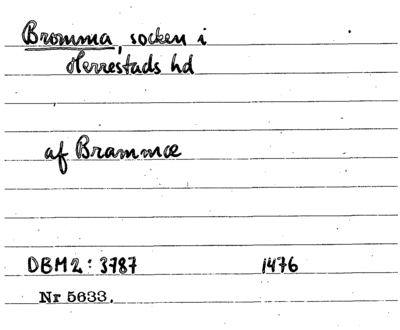 Bromma, socken i
Herrestads hd
af Brammæ
DBM2: 3787 1476
Nr 5633.